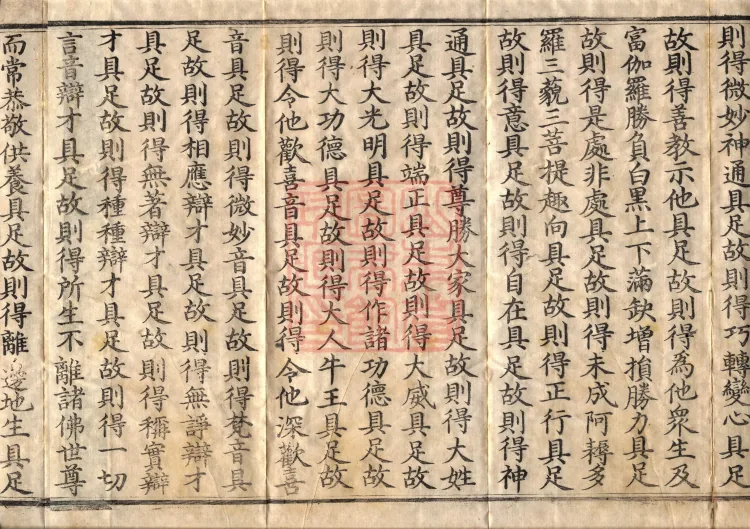 則得微妙神通具足故則得巧轉變心具足
故則得善教示他具足故則得為他衆生及
富伽羅勝負白黑上下滿缺增損勝力具足
故則得是處非處具足故則得未成阿耨多
羅三藐三菩提趣向具足故則得正行具足
故則得意具足故則得自在具足故則得神
通具足故則得尊勝大家具足故則得大姓
具足故則得端正具足故則得大威具足故
則得大光明具足故則得作諸功德具足故
則得大功德具足故則得大人牛王具足故
則得令他歡喜音具足故則得令他深歡喜
音具足故則得微妙音具足故則得梵音具
足故則得相應辯才具足故則得無諍辯才
具足故則得無著辯才具足故則得稱實辯
才具足故則得種種辯才具足故則得一切
言音辯才具足故則得所生不離諸佛世尊
而常恭敬供養具足故則得離邊地生具足